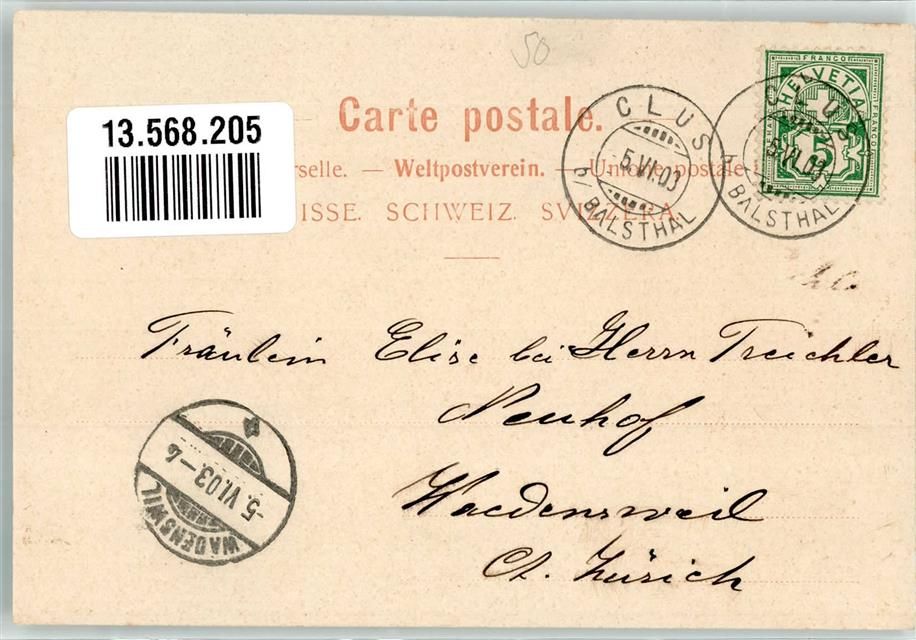 50
Carte postale.
13.568.205
rselle. — Weltpostverein. — Union postale
ISSE. SCHWEIZ. SVIZZERA.
CLUS
5.VI.03
b/ BALSTHAL
CLUS
5.VI.03
BALSTHAL
FRANCO
HELVETIA
FRANCO
5
Fräulein Elise bei Herrn Treichler
Neuhof
Waedensweil
Ct. Zürich
-5.VI.03-6
WÄDENSWIL